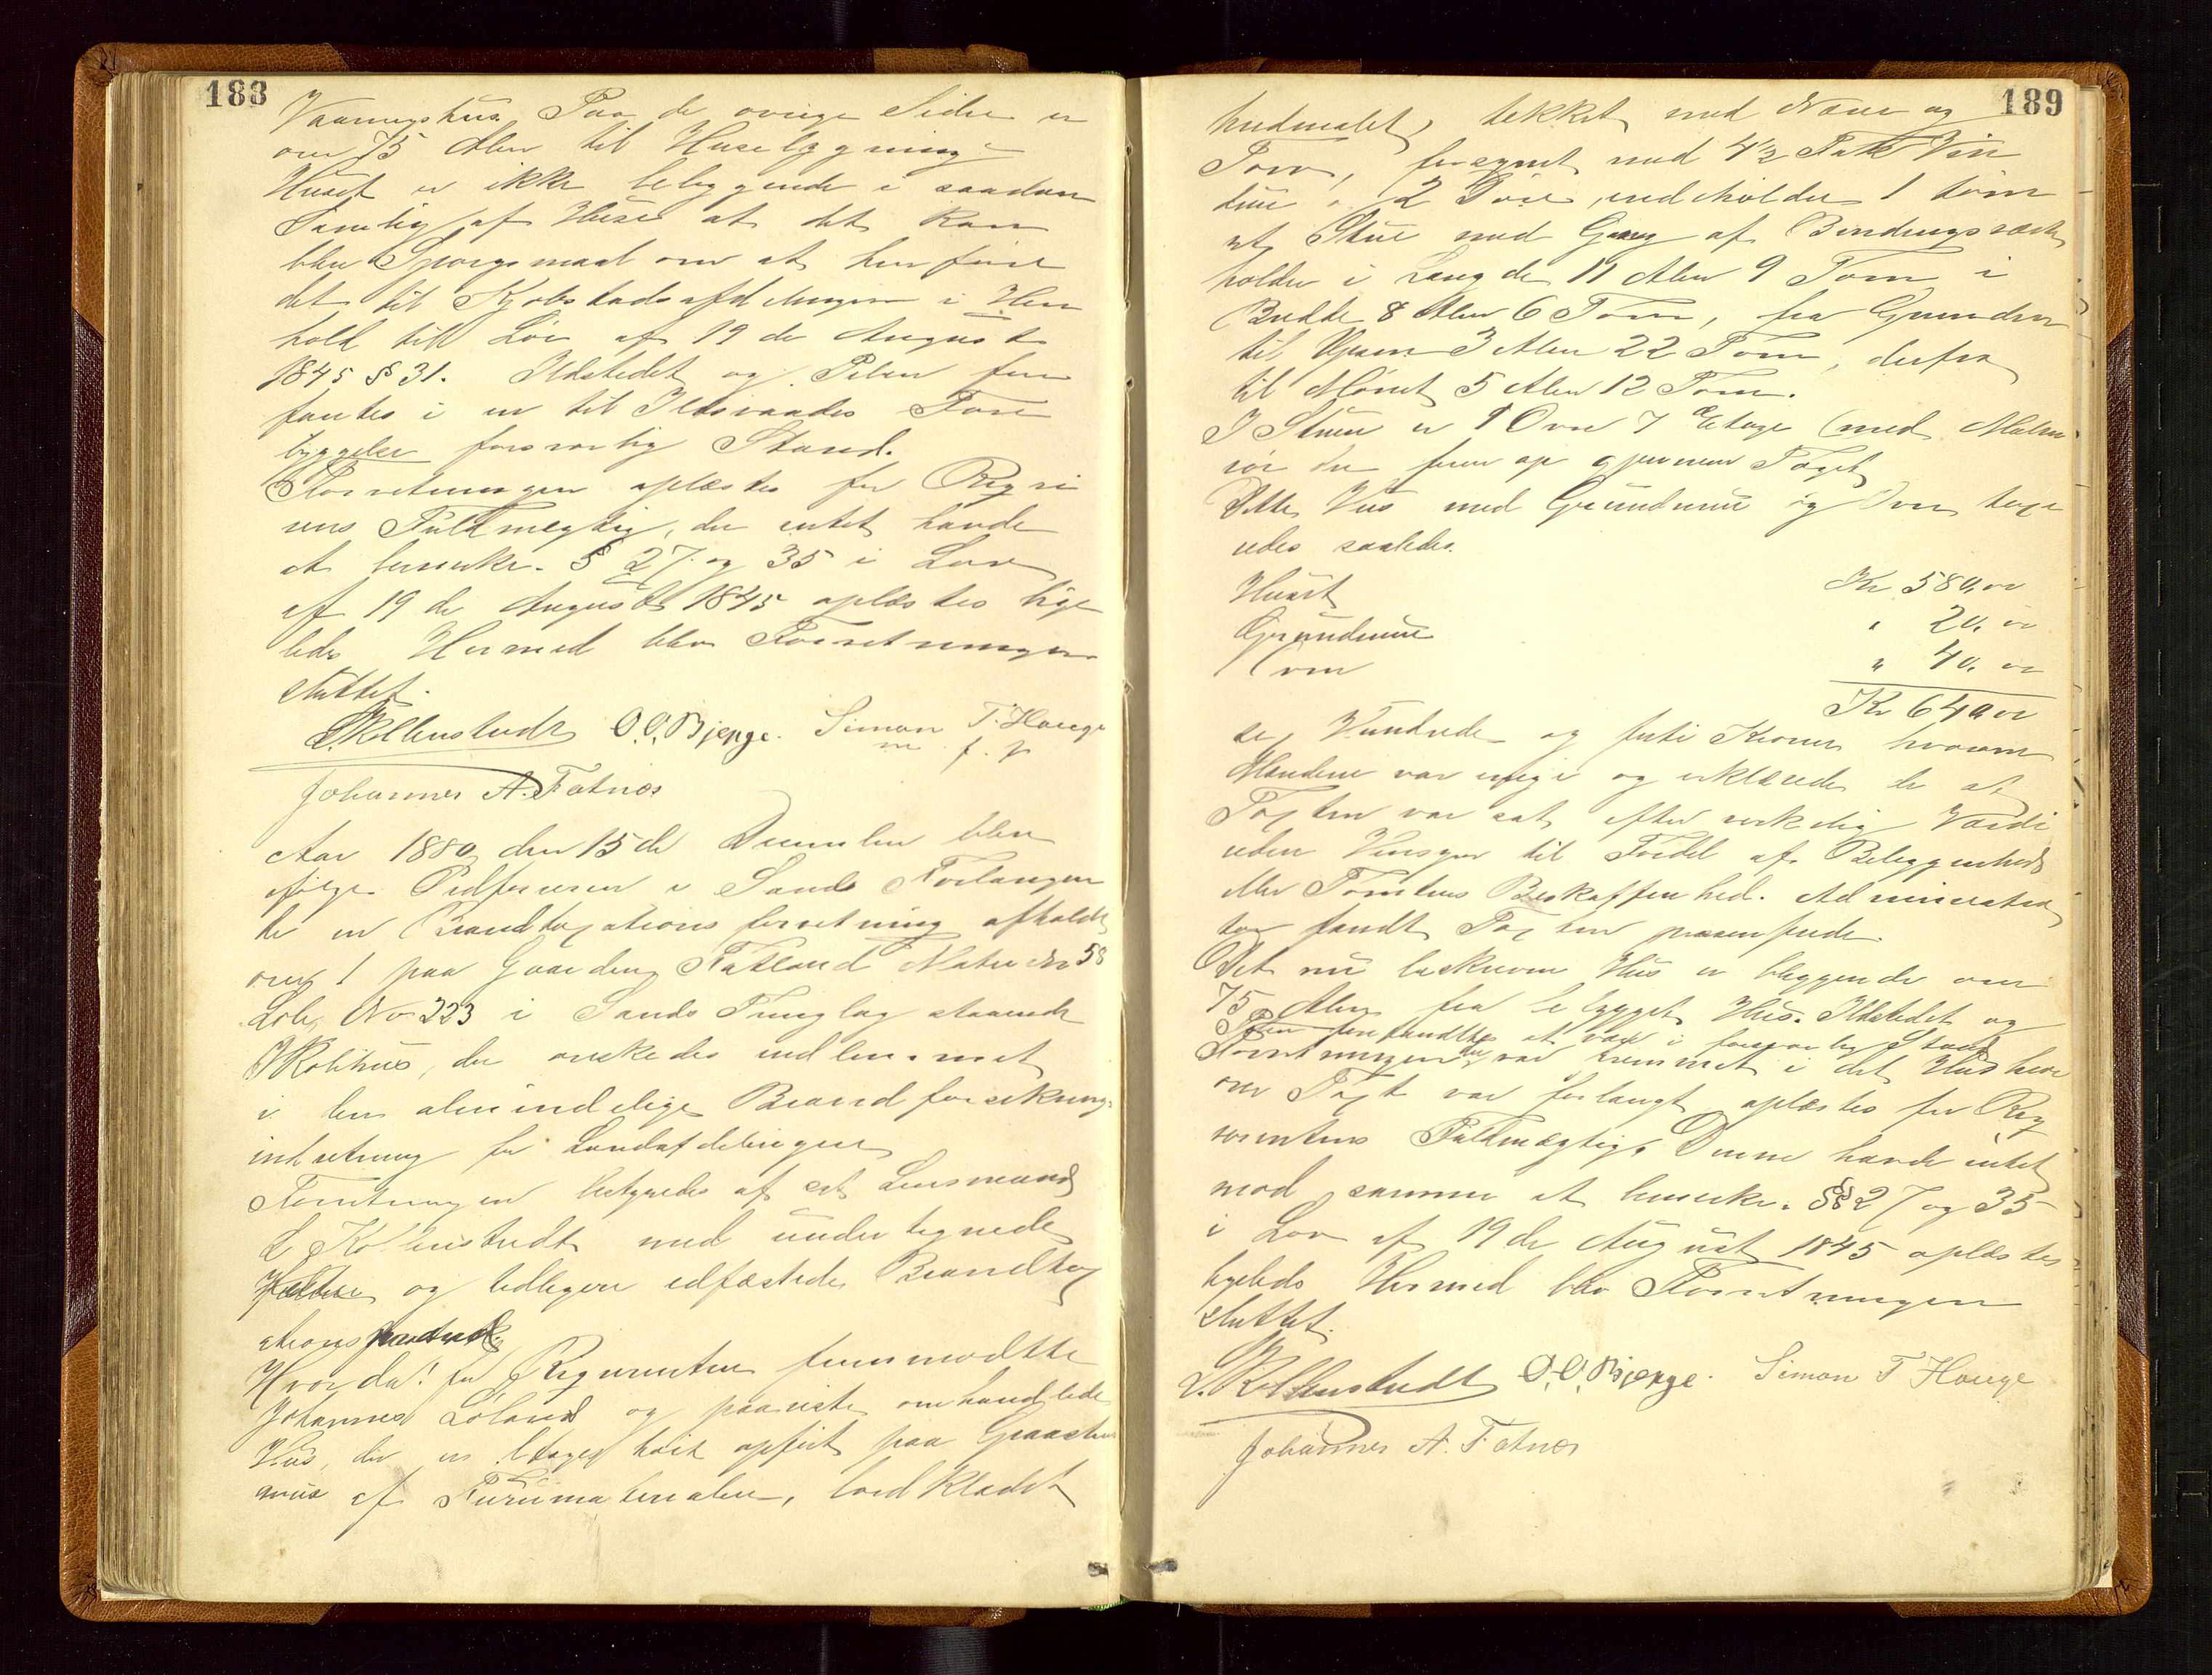 188
Vaaningshus. Paa de øvrige Sider er
over 75 Alen til Husebygning.
Huset er ikke beliggende i saadan
Samling af Huse at det kan
blive Spørgsmaal om at henføre
det til Kjøbstadsafdelingen i Hen
hold till Lov af 19de August
1845 § 31. Ildstedet og Piben fore
fantes i en til Ildsvaades Fore
byggelse forsvarlig Stand.
Forretningen oplæstes for Reqvi
rens Fuldmægtig, der intet havde
at bemærke. § 27 og 35 i Lov
af 19de August 1845 oplæstes lige
ledes Hermed blev Forretningen
sluttet.
L. Kollenstedt O. O. Bjerge. Simon T. Hauge
m f. p
Johannes A. Fatnes
Aar 1880 den 15de December blev
ifølge Rekvirentens i Sands Forlangen
de en Brandtaxationsforretning afholdt
over 1 paa Gaarden Fatland Matr No 58
Løbe No 223 i Sands Tinglag staaende
Kolhus, der ønskedes indlemmet
i den almindelige Brandforsikrings
indretning for Landafdelingen
Forretningen bestyredes af est Lensmand
L Kollenstedt med undertegnede
og tidligere edfæstede Brandtax
ations
Hvorda! for Reqvirenten fremmødte
Johannes Løland og paaviste omhandlede
Hus, der er 1 Etages høit opført paa Graasten
mur af Furumaterialer, bordklædt
189
hvidmalet, tekket med Næver og
Torv, forsynet med 4½ Fak Vin
duer, 2 Døre, indeholder 1 tøm
ret Stue med Gang af Bindingsværk
holder i Længde 11 Alen 9 Tom i
Bredde 8 Alen 6 Tom, fra Grunden
til Gjesen 3 Alen 22 Tom, derfra
til Mønet 5 Alen 12 Tom.
I Stuen er 1 Ovn 7 Etage med Malm
rør der fører op gjennem Taget
Dette Hus med Grundmur og Ovn taxe
redes saaledes.
Huset Kr 580,00
Grundmur " 20,00
Ovn " 40,00
Kr 640,00
sex Hundrede og forti Kroner hvorom
Mændene var enige og erklærede de at
Taxten var sat efter virkelig Værdi
uden Hensyn til Fordel af Beliggenhed
eller Tomtens Beskaffenhed. Administra
tor fandt Taxten passende.
Det nu beskrevne Hus er beliggende over
75 Alen fra bebygget Hus. Ildstedet og
Piben forefandtes at være i forsvarlig Stand
Forretningen der var fremmet i det Hus hvor
over Taxt var forlangt oplæstes for Reqv
rentens Fuldmægtig. Denne havde intet
mod samme at bemærke. §§ 27 og 35
i Lov af 19de August 1845 oplæstes
ligeledes Hermed blev Forretningen
sluttet.
L. Kollenstedt O. O. Bjerge. Simon T Hauge
Johannes A. Fatnes